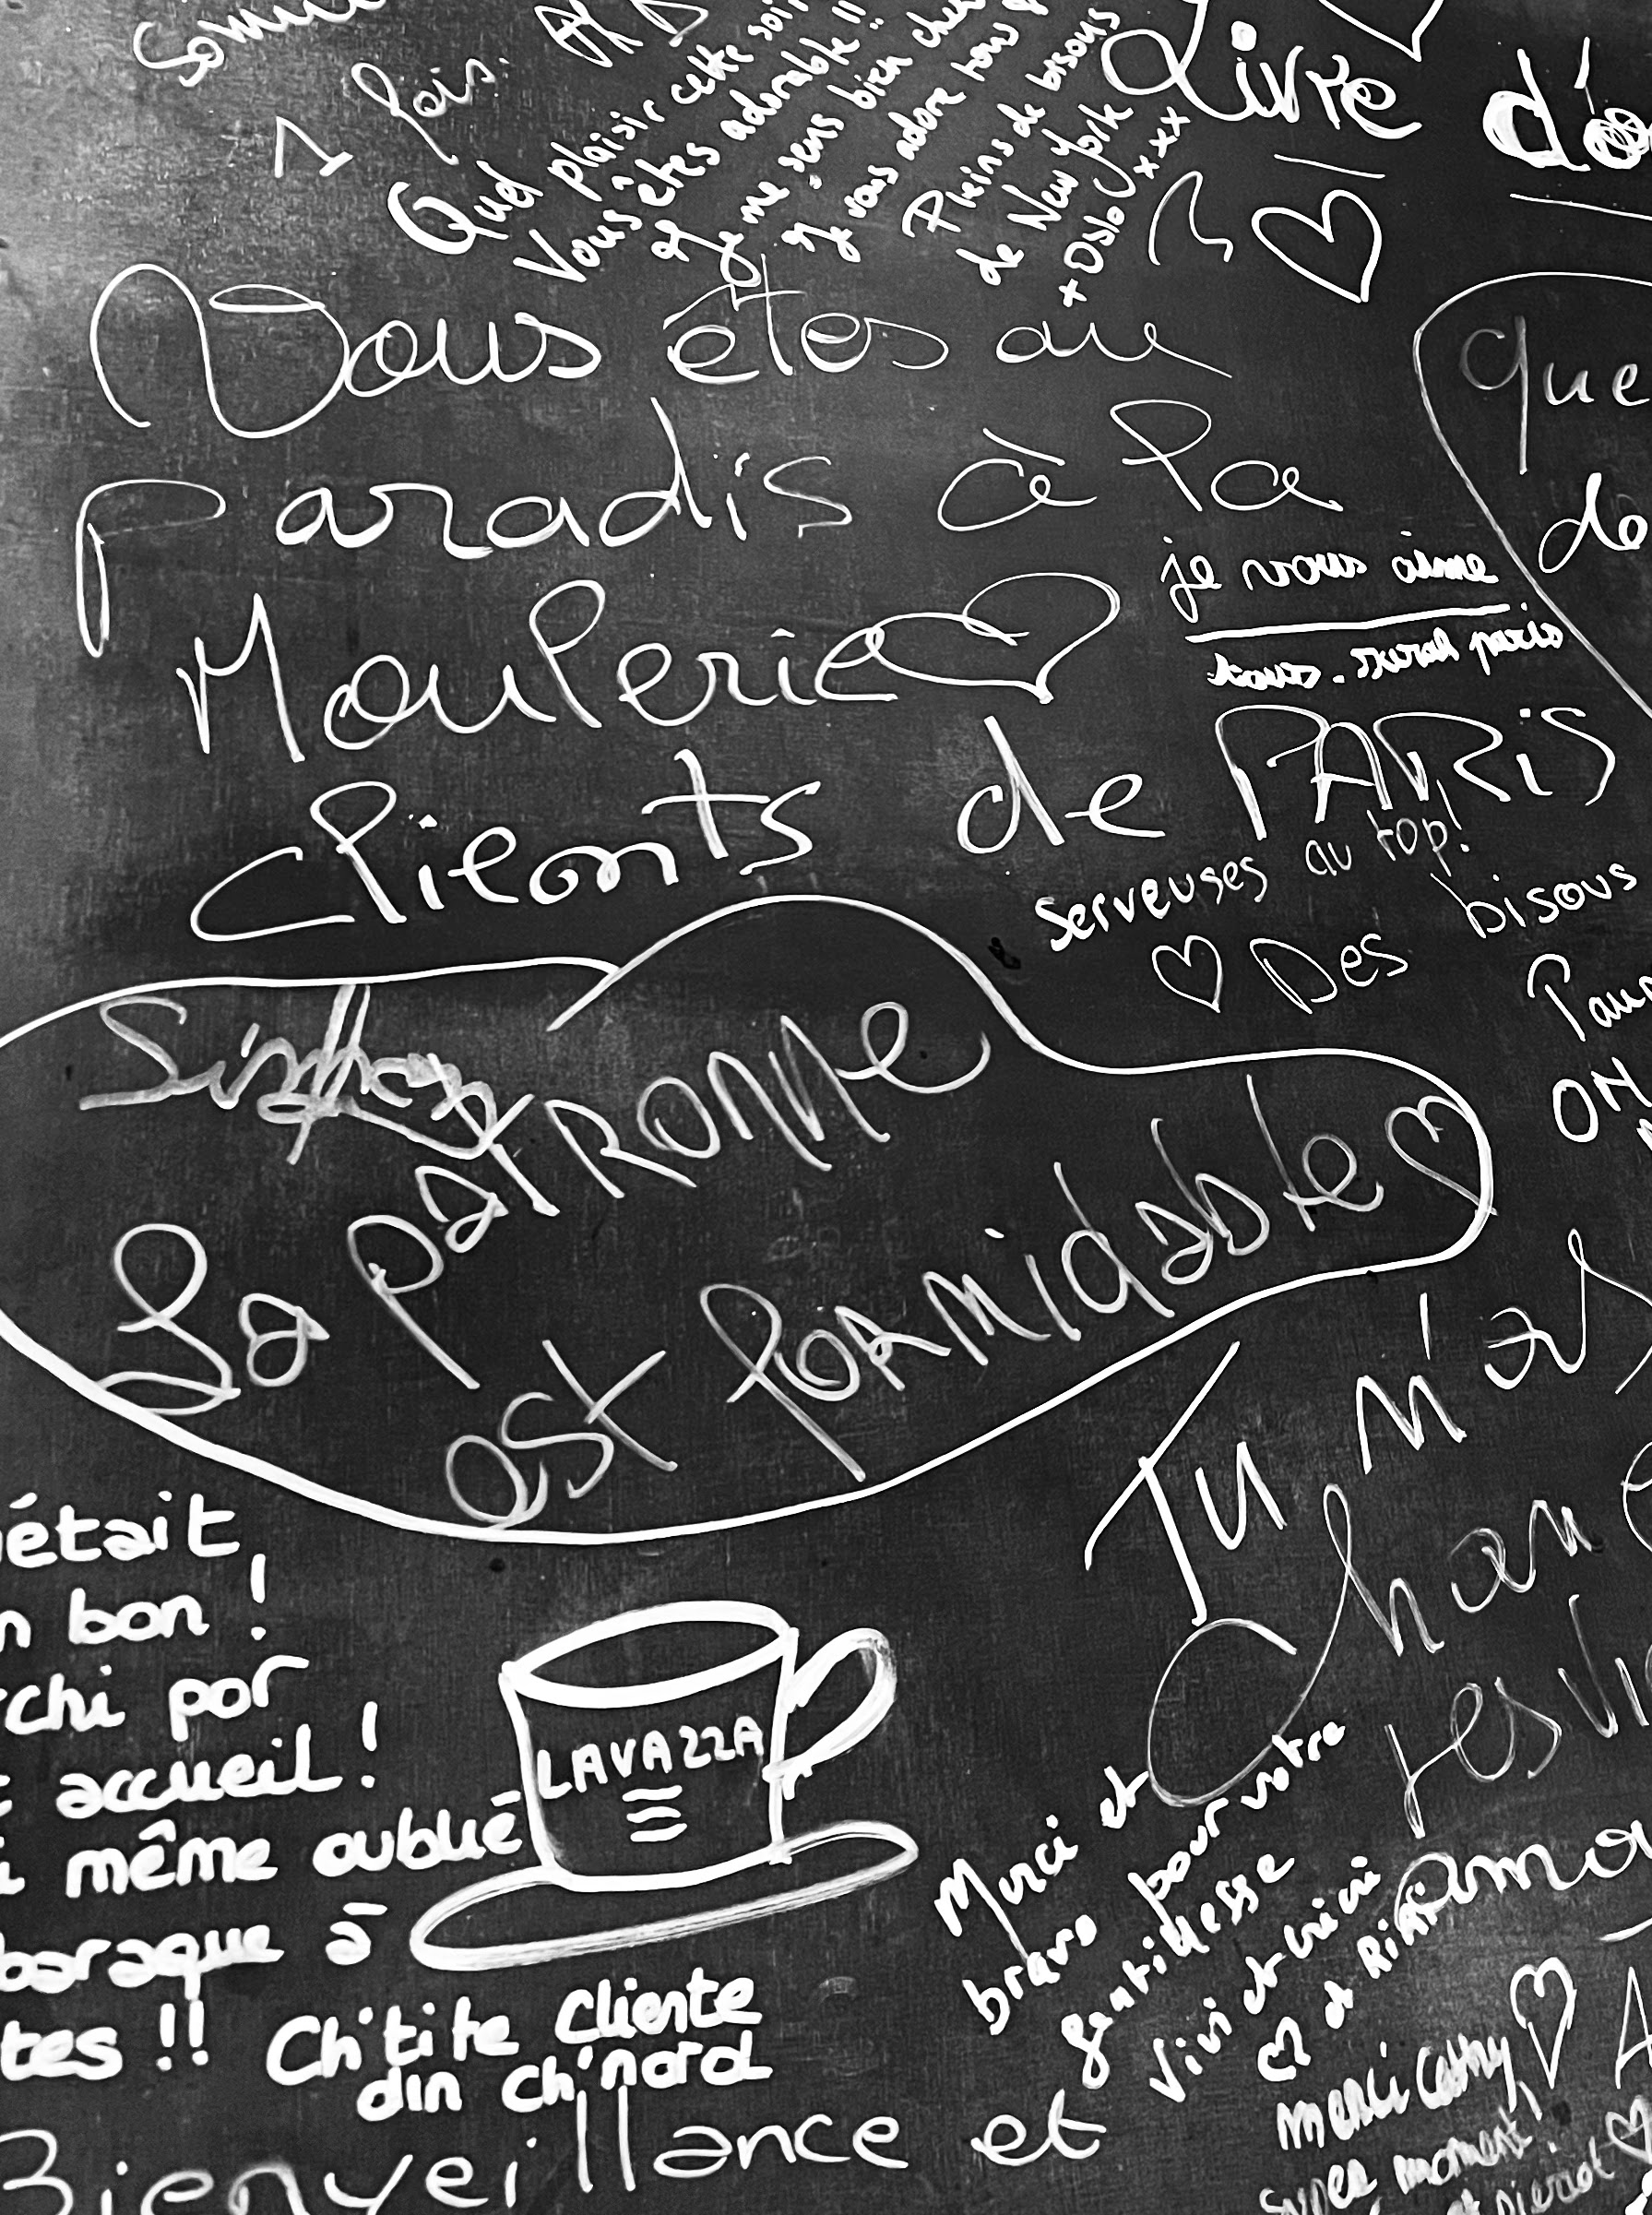 1 fois.
Quel plaisir cette soir
Vous êtes adorable!!
Je me sens bien chez
Je vous adore tous
Pleins de bisous
de New York
+ Oslo xxxx
Livre d'o
Vous êtes au
paradis à la
Moulerie
Clients de PARIS
que
de
je vous aime
paris
serveuses au top!
Des bisous
ON
La patronne
est formidable
Tu m'as
était
bon!
rchi por
accueil!
même oublié
baraque à
tes!! Ch'tite cliente
din ch'nord
LAVAZZA
Merci et
bravo pour votre
gentillesse
Vivi et
et
Merci Cathy
super moment!
et pierrot
Bienveillance et